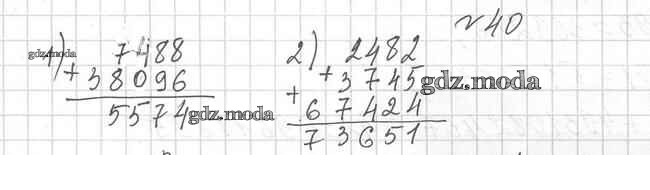 № 40
1) 7488
+ 38096
5574
2) 2482
+ 3745
+ 67424
73651
gdz.moda
gdz.moda
gdz.moda